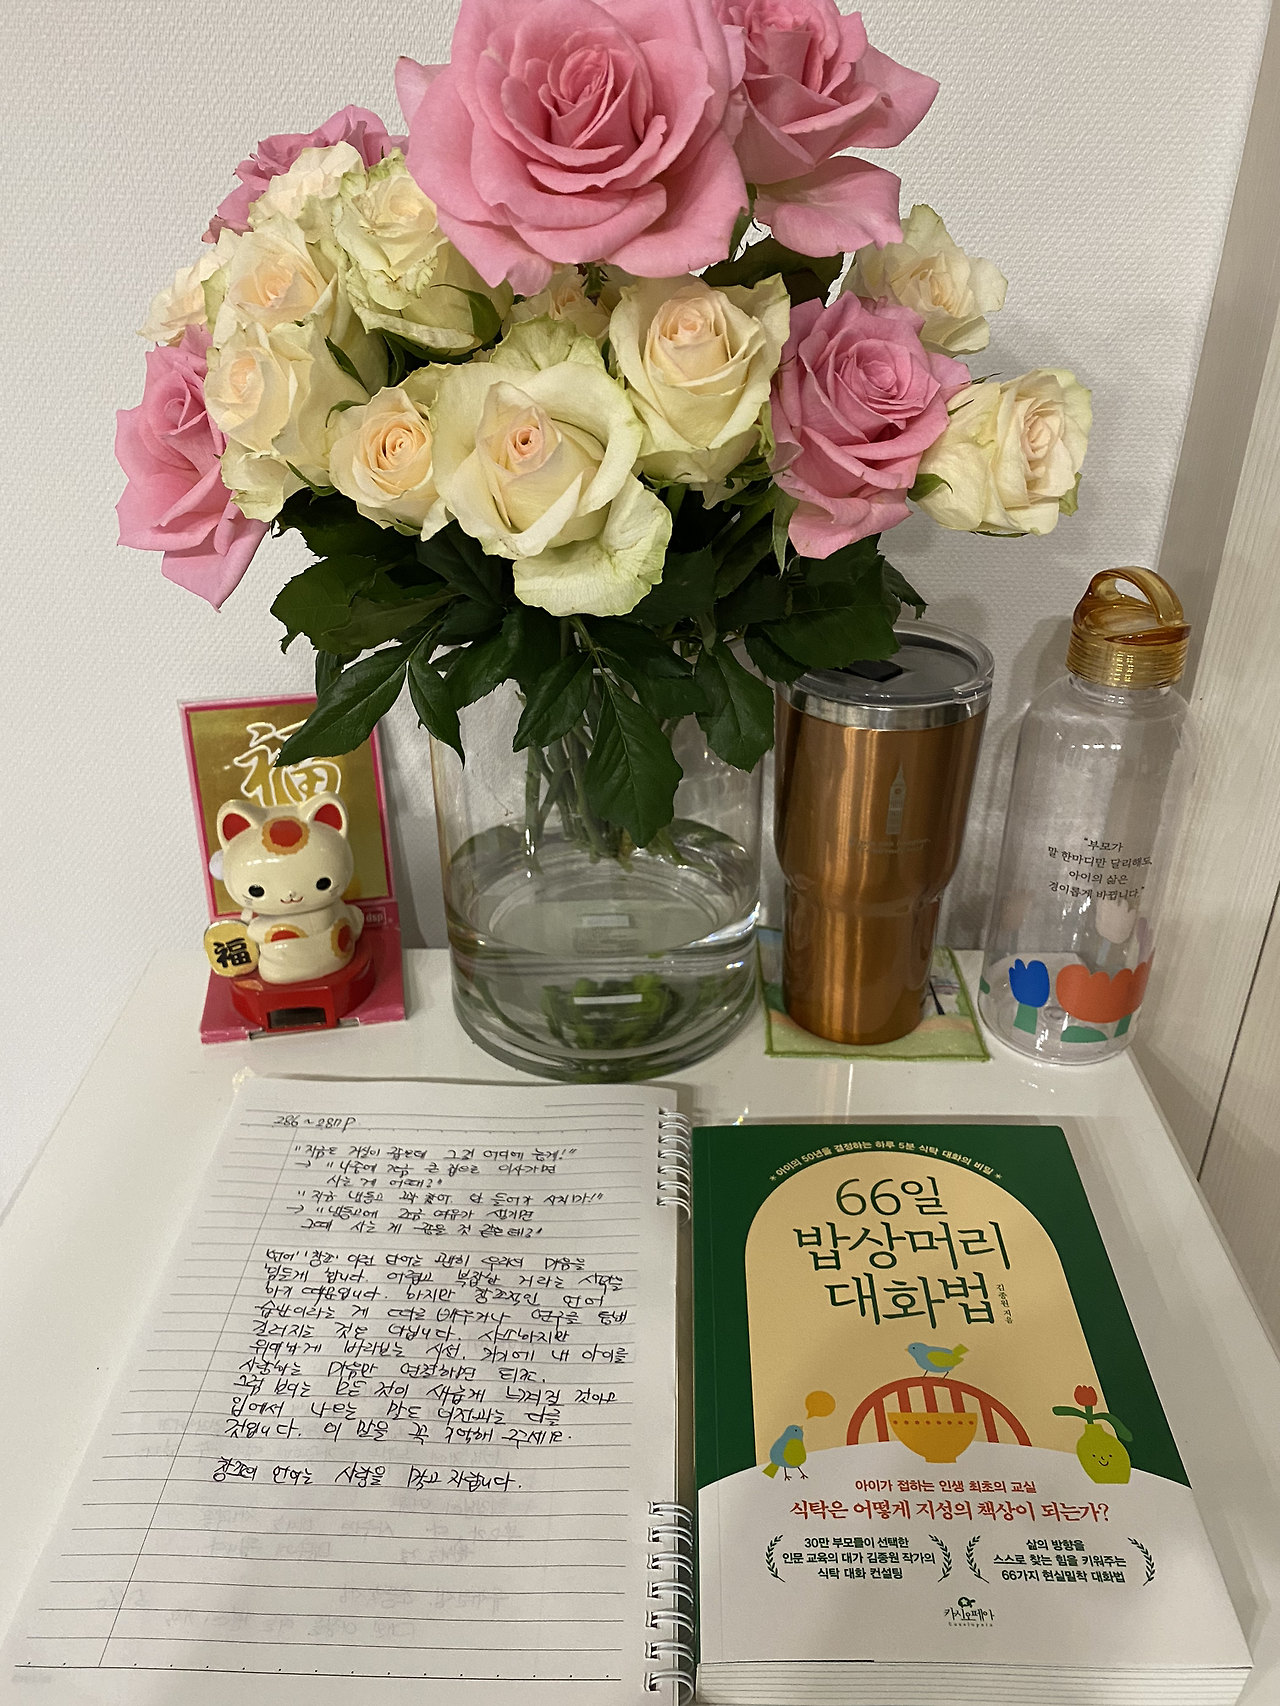 福
福
"부모가
말 한마디만 달리해도
아이의 삶은
경이롭게 바뀝니다."
286~287P.
"지금은 거실이 좁은데 그걸 어디에 놓게!"
→ "나중에 조금 큰 집으로 이사가면
사는 게 어때?"
"지금 냉동고 꽉 찼어. 안 들어가 사지마!"
→ "냉동고에 조금 여유가 생기면
그때 사는 게 좋을 것 같은데?"
'언어' '창조' 이런 단어는 괜히 우리의 마음을
힘들게 합니다. 어렵고 복잡한 거라는 생각을
하기 때문입니다. 하지만 창조적인 언어
습관이라는 게 따로 배우거나 연구를 통해
길러지는 것은 아닙니다. 사소하지만
위대하게 바라보는 시선. 거기에 내 아이를
사랑하는 마음만 연결하면 되죠.
그럼 보이는 모든 것이 새롭게 느껴질 것이고
입에서 나오는 말도 이전과는 다를
것입니다. 이 말을 꼭 기억해 주세요.
창조의 언어는 사랑을 먹고 자랍니다.
아이의 50년을 결정하는 하루 5분 식탁 대화의 비밀
66일
밥상머리
대화법
김종원 지음
아이가 접하는 인생 최초의 교실
식탁은 어떻게 지성의 책상이 되는가?
30만 부모들이 선택한
인문 교육의 대가 김종원 작가의
식탁 대화 컨설팅
삶의 방향을
스스로 찾는 힘을 키워주는
66가지 현실밀착 대화법
카시오페아
Cassiopeia